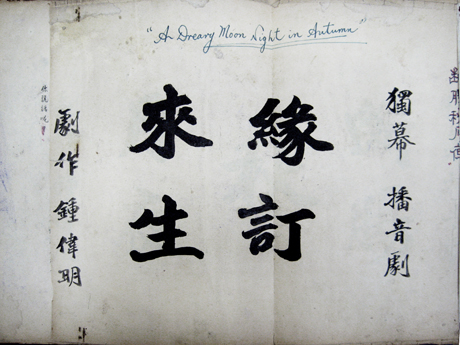 "A Dreary Moon Night in Autumn"
獨幕 播音劇
緣訂
來生
劇作 鍾偉明